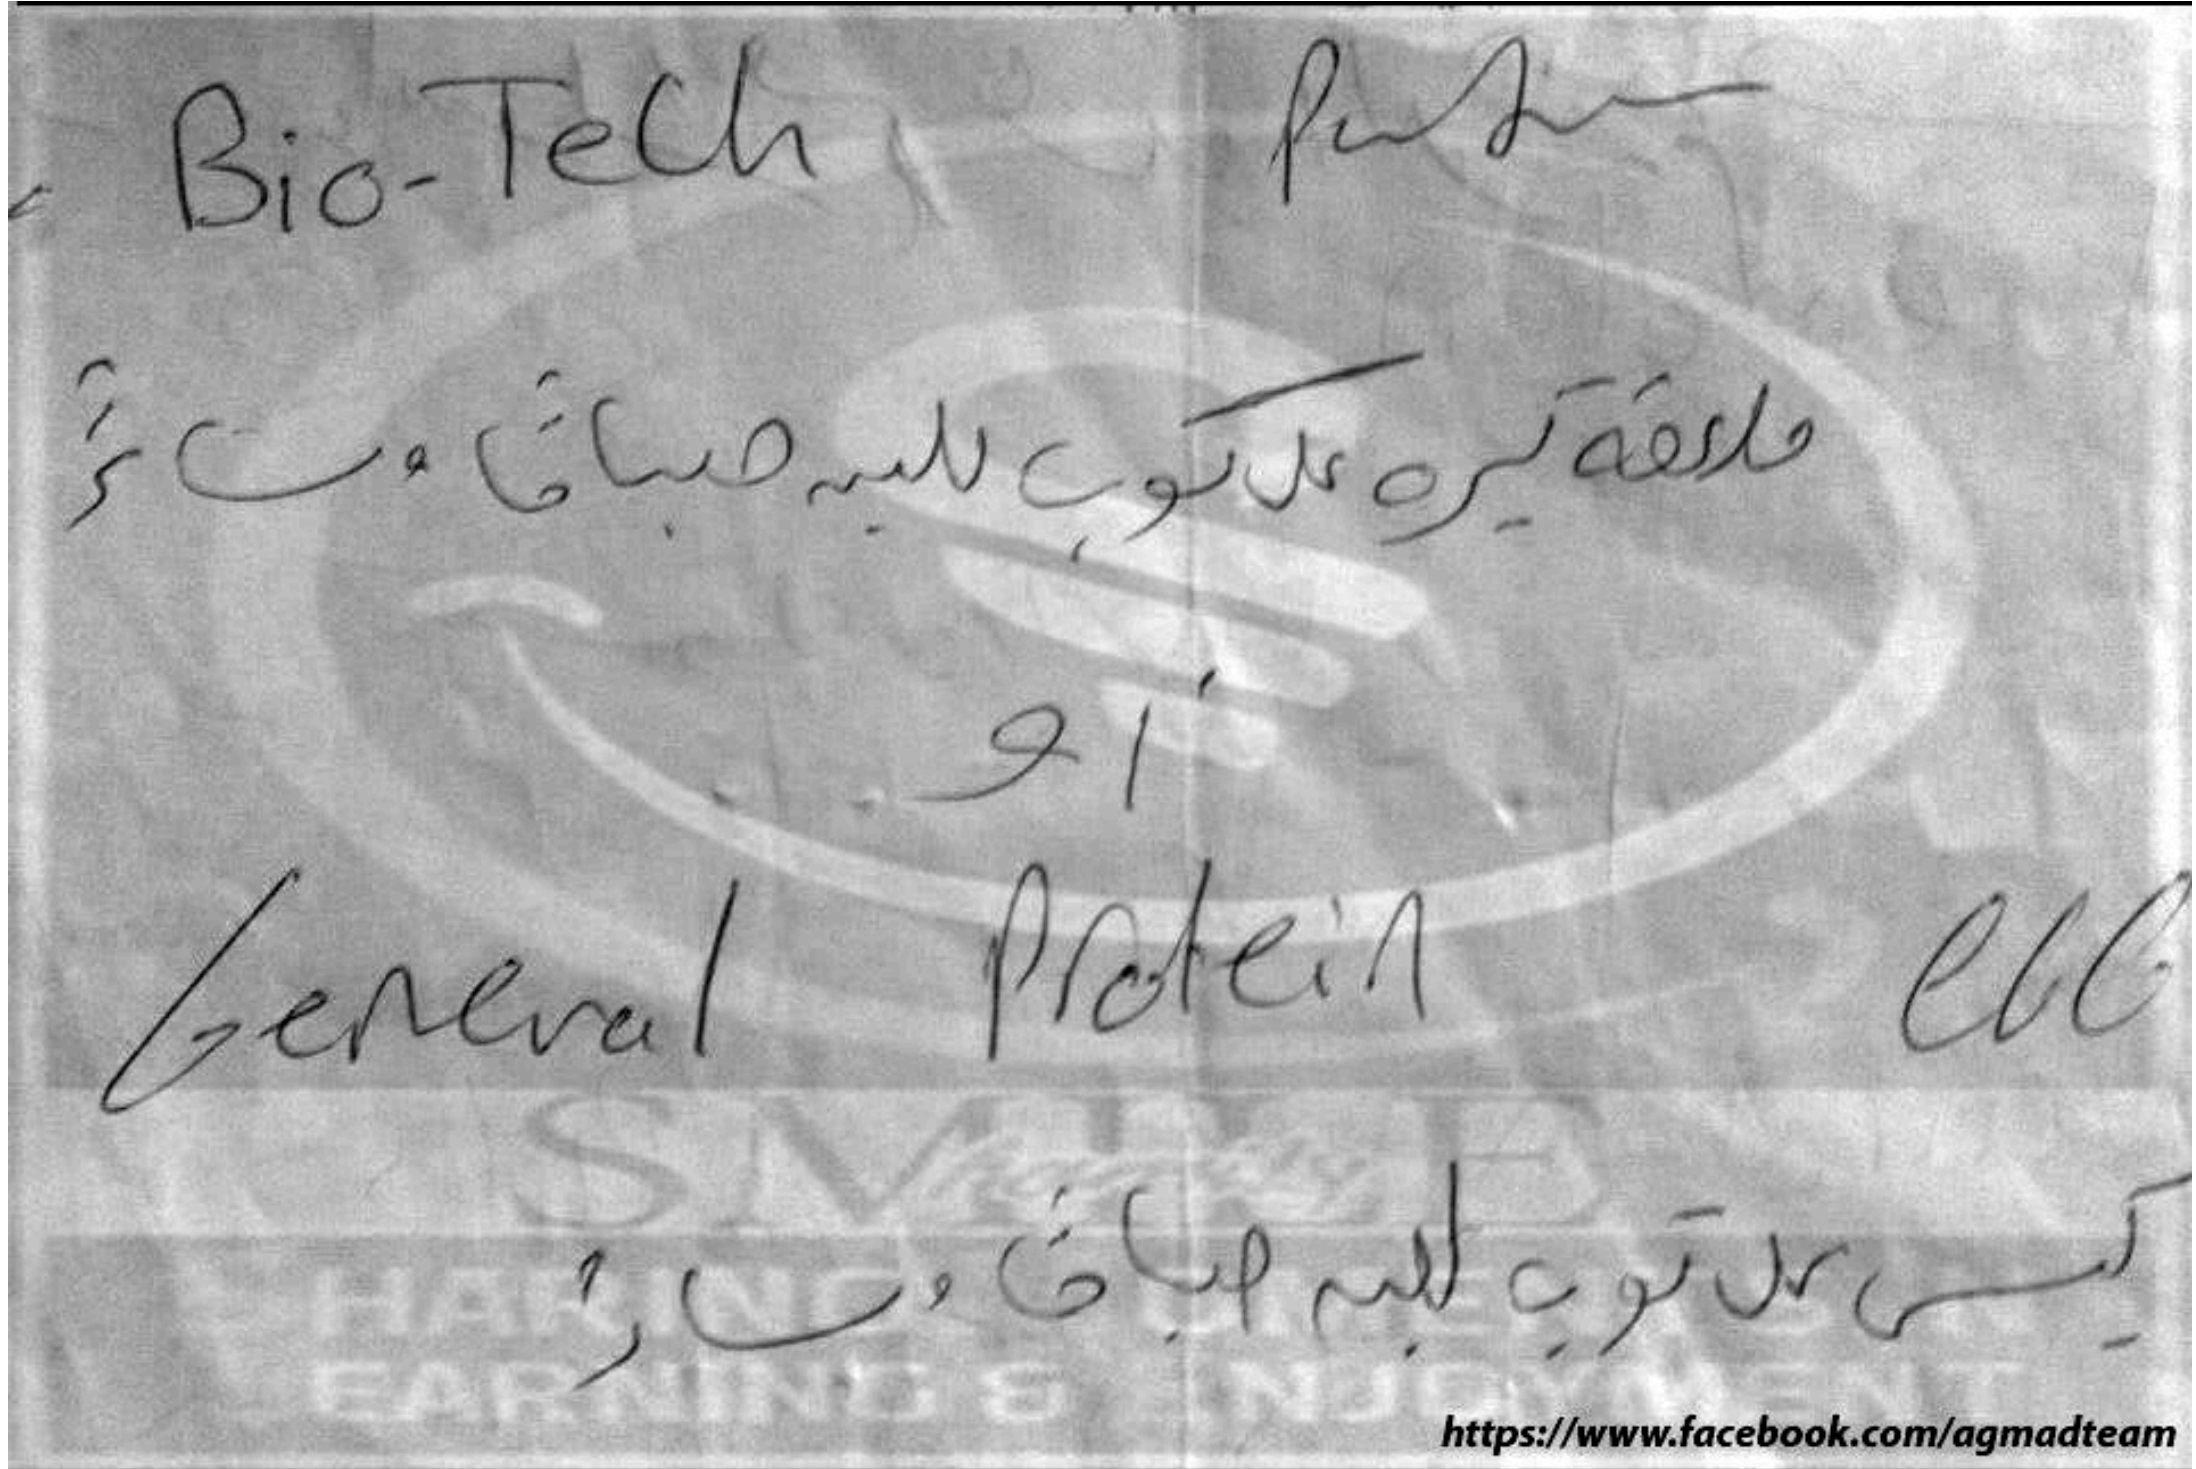 Bio-Tech
ملعقة كبيرة على كوب لبن صباحًا ومساءً
أو
General Protein egg
كيس على كوب لبن صباحًا ومساءً
https://www.facebook.com/agmadteam